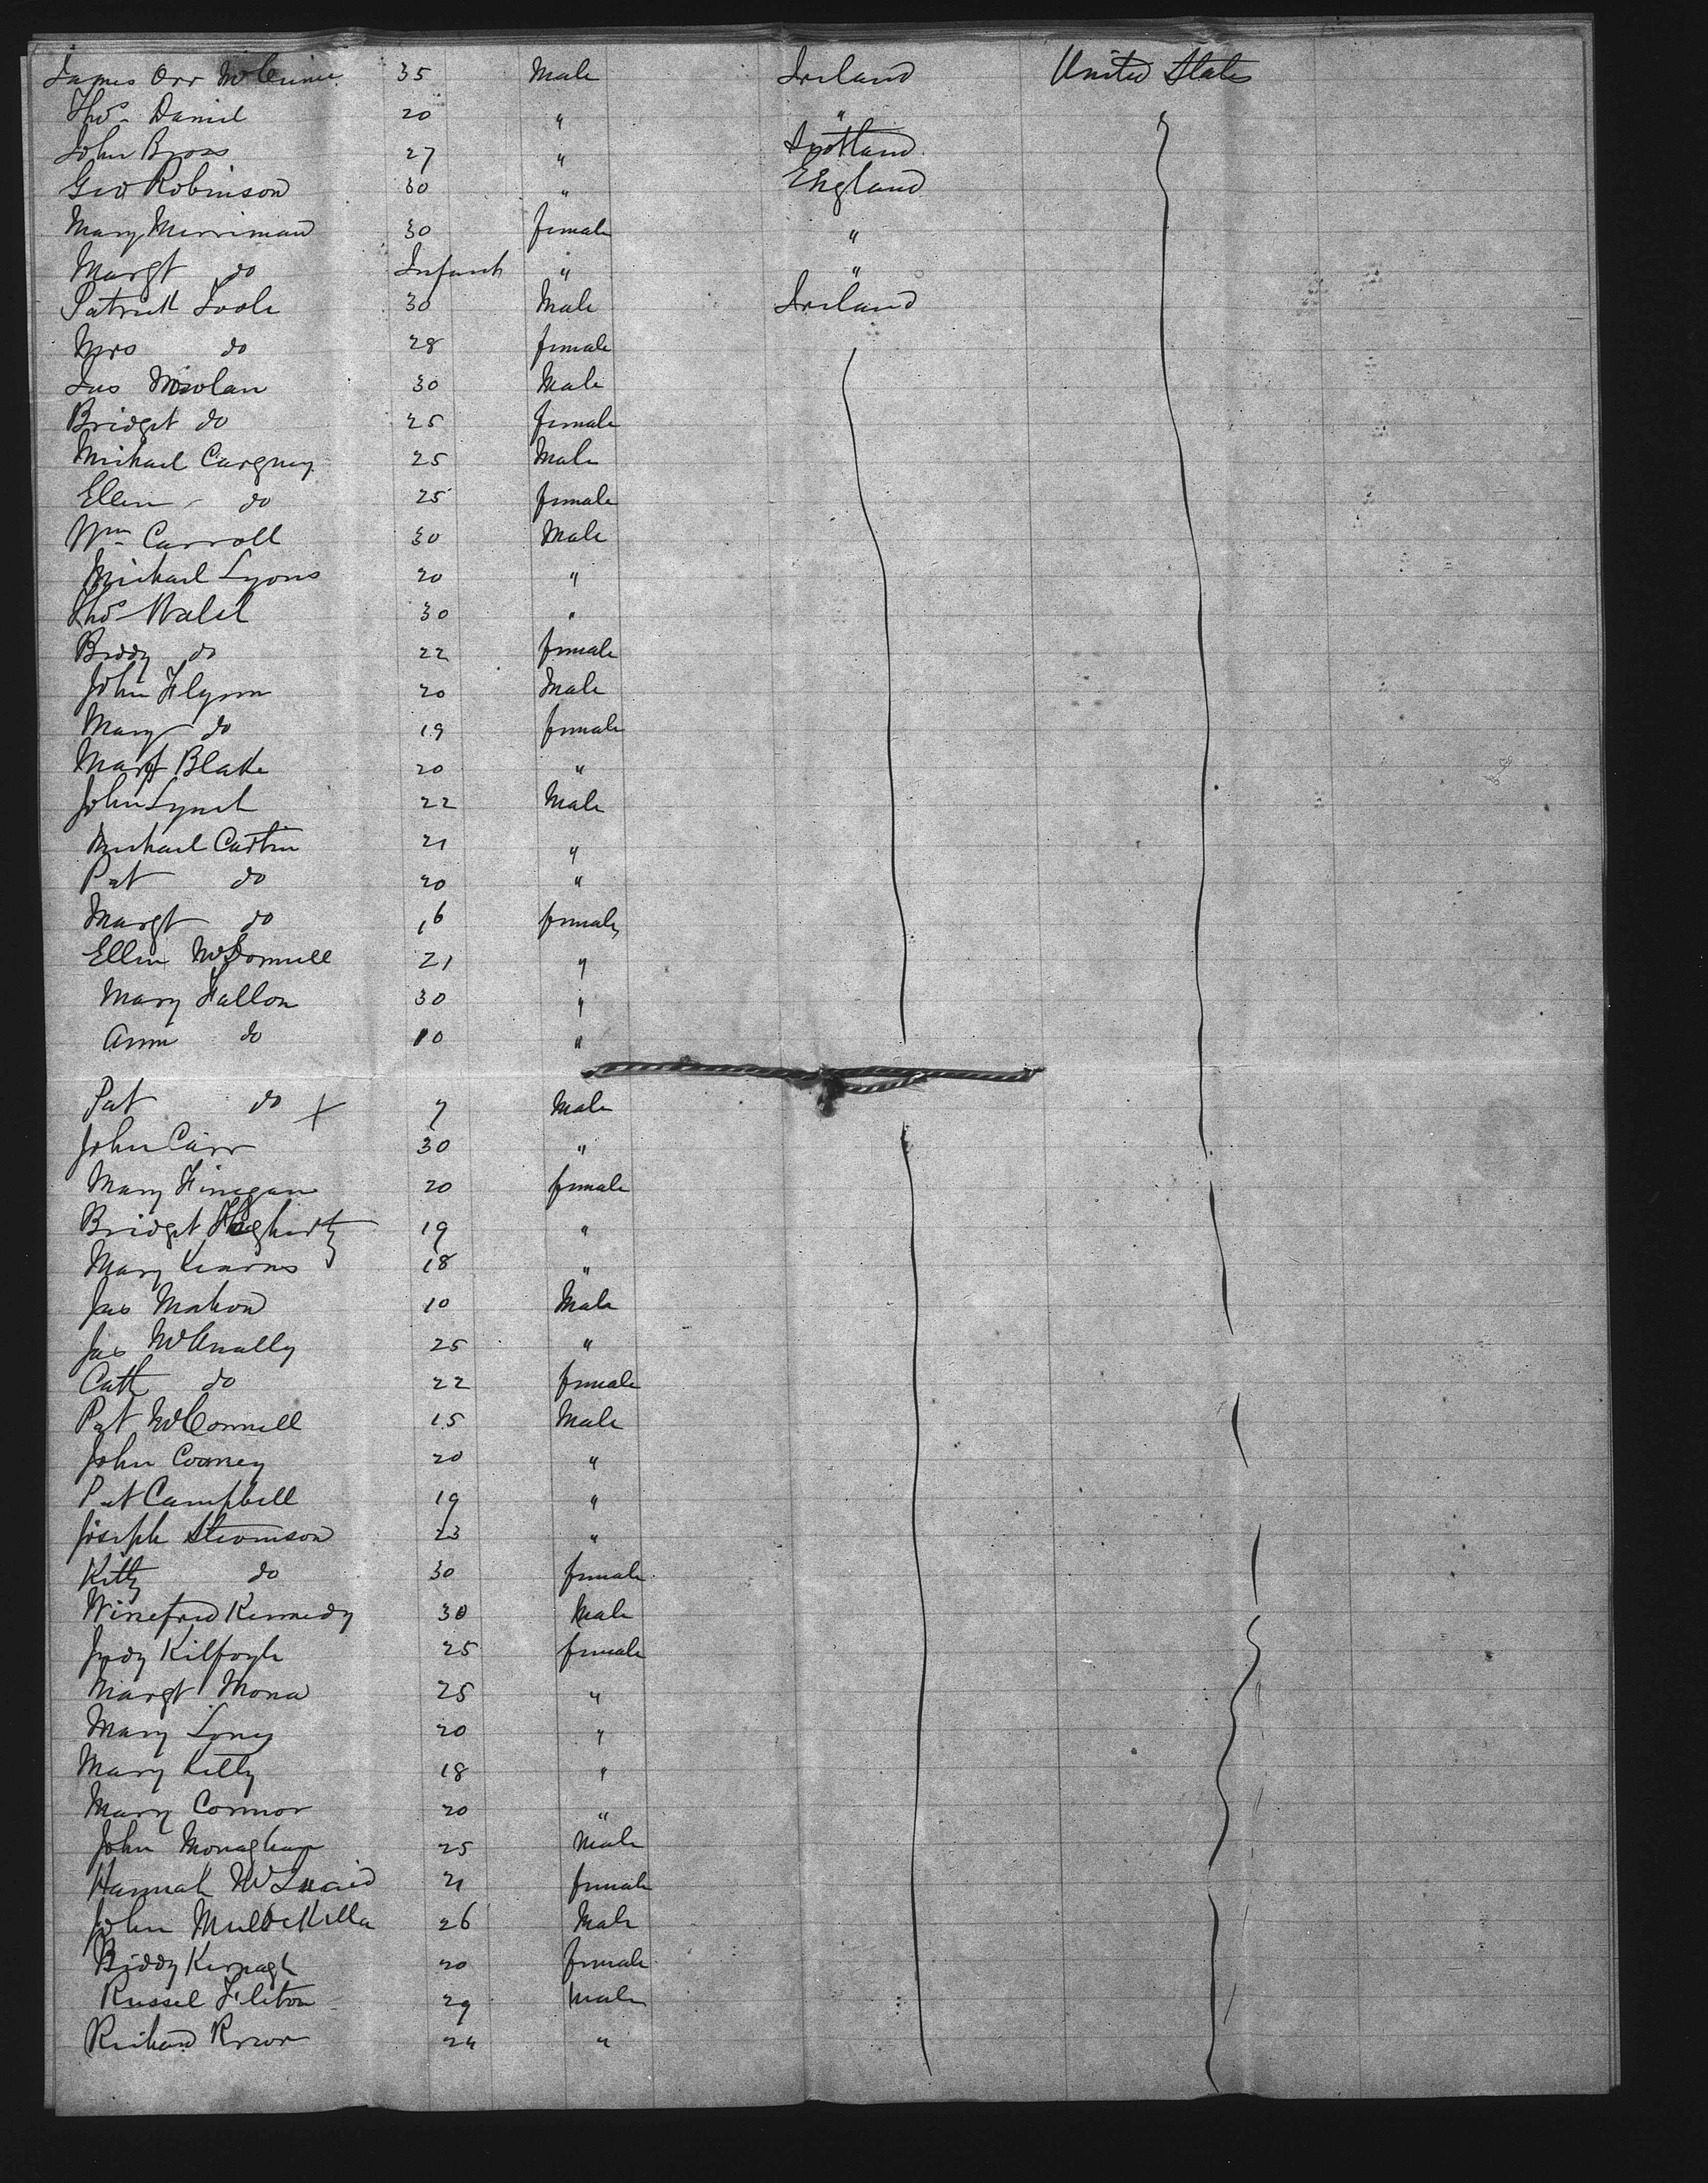 James Orr 35 Male Ireland United States
Thos Daniel 20 " "
John Bross 27 " Scotland
Geo Robinson 30 " England
Mary Merriman 30 female "
Margt do Infant " "
Patrick Toole 30 Male Ireland
Mrs do 28 female
Jas 30 Male
Bridget do 25 female
Michael 25 Male
Ellen do 25 female
Wm Carroll 30 Male
Michael Lyons 20 "
Thos Walsh 30 "
Biddy do 22 female
John Flynn 20 Male
Mary do 19 female
Margt Blake 20 "
John Lynch 22 Male
Michael 21 "
Pat do 20 "
Margt do 16 female
Ellen McDonnell 21 "
Mary Fallon 30 "
Ann do 10 "
Pat do x 7 Male
John Carr 30 "
Mary Finegan 20 female
Bridget 19 "
Mary Kearns 18 "
Jas Mahon 10 Male
Jas McAnally 25 "
Cath do 22 female
Pat McConnell 15 Male
John Cooney 20 "
Pat Campbell 19 "
Joseph 23 "
Kitty do 30 female
Winefred Kennedy 30 Male
Judy Kilfoyle 25 female
Margt Mona 25 "
Mary Long 20 "
Mary Kelly 18 "
Mary Connor 20 "
John Monaghan 25 Male
Hannah McQuaid 21 female
John 26 Male
Biddy 20 female
Russel 29 Male
Richard 24 "